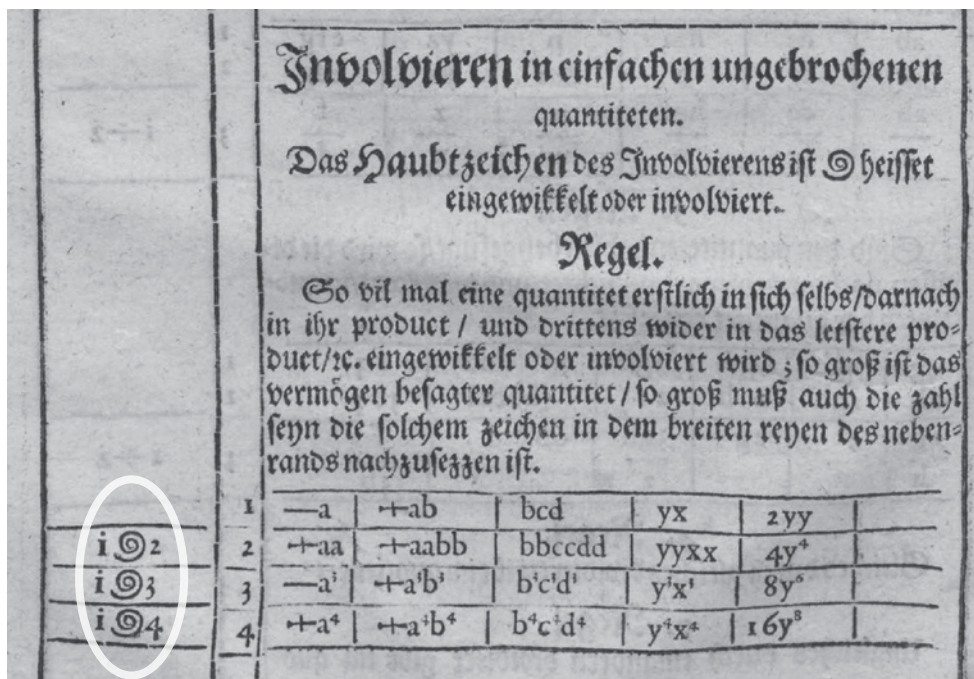 Involvieren in einfachen ungebrochenen
quantiteten.
Das Haubtzeichen des Involvierens ist ꩜ heisset
eingewikkelt oder involviert.
Regel.
So vil mal eine quantitet erstlich in sich selbs/darnach
in ihr product / und drittens wider in das letstere pro-
duct/ꝛc. eingewikkelt oder involviert wird ; so groß ist das
vermögen besagter quantitet / so groß muß auch die zahl
seyn die solchem zeichen in dem breiten reyen des neben-
rands nachzusezzen ist.
1 —a | +ab | bcd | yx | 2yy
1 ꩜ 2 2 +aa | +aabb | bbccdd | yyxx | 4y⁴
1 ꩜ 3 3 —a³ | +a³b³ | b³c³d³ | y³x³ | 8y⁶
1 ꩜ 4 4 +a⁴ | +a⁴b⁴ | b⁴c⁴d⁴ | y⁴x⁴ | 16y⁸